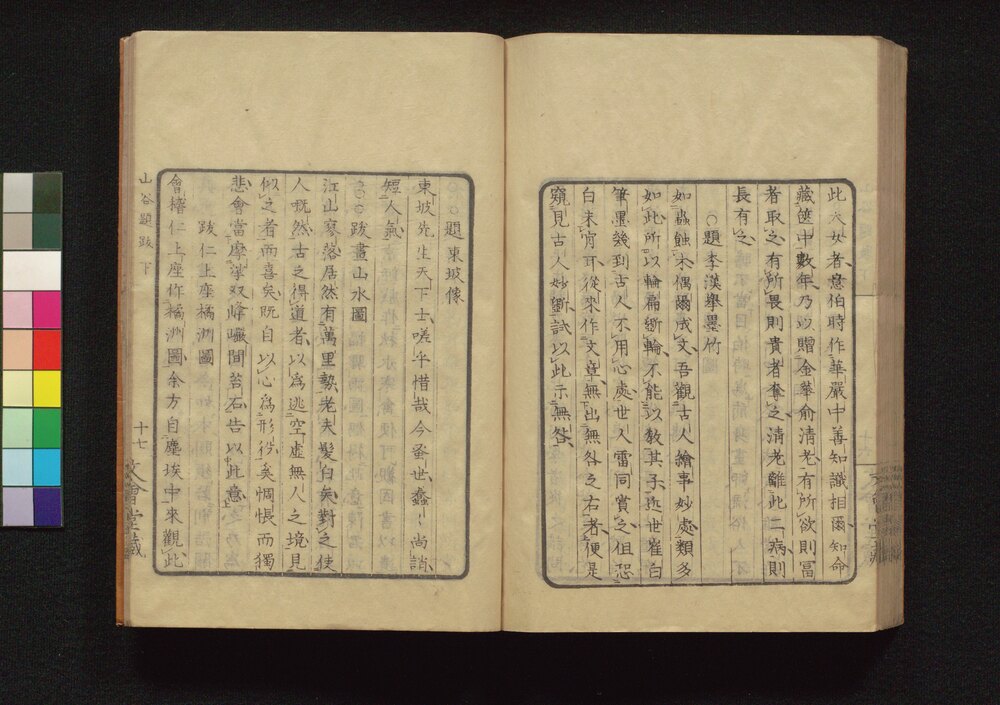 此大女者意伯時作華嚴中善知識相爾知命
藏篋中數年乃以贈金華俞清老有所欲則冨
者取之有所畏則貴者奪之清老離此二病則
長有之
○題李漢舉墨竹
如蟲蝕木偶爾成文吾觀古人繪事妙處類多
如此所以輪扁斲輪不能以教其子近世崔白
筆墨幾到古人不用心處世人雷同賞之但恐
白未肯耳從來作文章無出無咎之右者便是
窺見古人妙斲試以此示無咎
○○題東坡像
東坡先生天下士嗟乎惜哉今蚤世蠢〻尚誚
短人氣
○○跋畫山水圖
江山寥落居然有萬里勢老夫髮白矣對之使
人慨然古之得道者以為逃空虛無人之境見
似之者而喜矣既自以心為形役奚惆悵而獨
悲會當摩挲双峰巖間苔石告以此意
跋仁上座橘洲圖
會稽仁上座作橘洲圖余方自塵埃中來觀此
山谷題跋 下
十七
文會堂藏